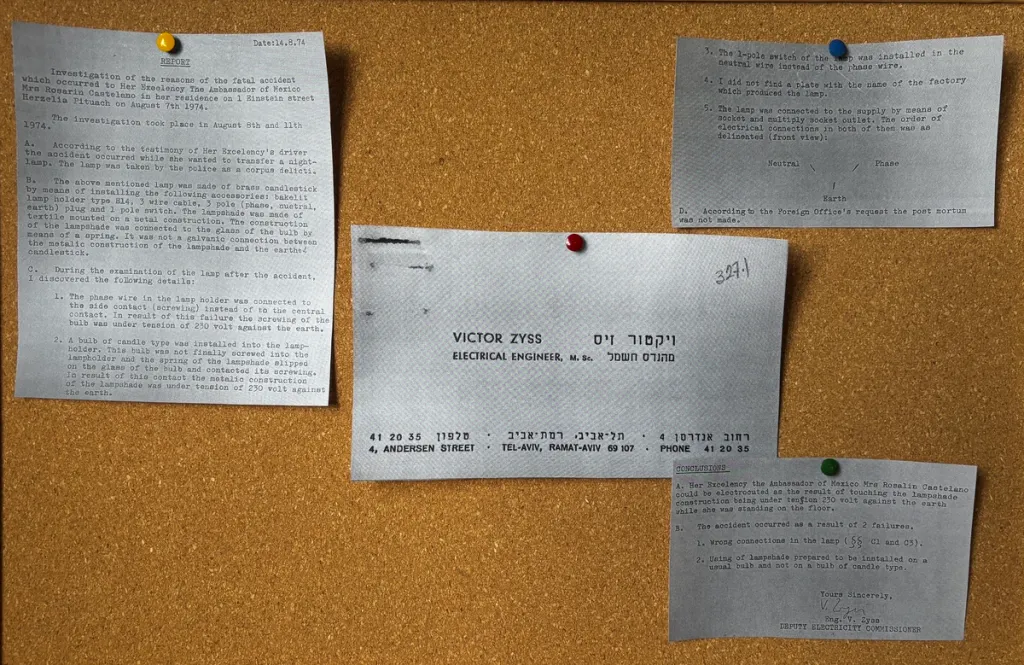 Date:14.8.74
REPORT
Investigation of the reasons of the fatal accident
which occurred to Her Excelency The Ambassador of Mexico
Mrs Rosarin Castelano in her residence on 1 Einstein street
Herzelia Pituach on August 7th 1974.
The investigation took place in August 8th and 11th
1974.
A. According to the testimony of Her Excelency's driver
the accident occurred while she wanted to transfer a night-
lamp. The lamp was taken by the police as a corpus delicti.
B. The above mentioned lamp was made of brass candlestick
by means of installing the following accessories: bakelit
lamp holder type E14, 3 wire cable, 3 pole (phase, nutral,
earth) plug and 1 pole switch. The lampshade was made of
textile mounted on a metal construction. The construction
of the lampshade was connected to the glass of the bulb by
means of a spring. It was not a galvanic connection between
the metalic construction of the lampshade and the earthed
candlestick.
C. During the examination of the lamp after the accident,
I discovered the following details:
1. The phase wire in the lamp holder was connected to
the side contact (screwing) instead of to the central
contact. In result of this failure the screwing of the
bulb was under tension of 230 volt against the earth.
2. A bulb of candle type was installed into the lamp-
holder. This bulb was not finally screwed into the
lampholder and the spring of the lampshade slipped
on the glass of the bulb and contacted its screwing.
In result of this contact the metalic construction
of the lampshade was under tension of 230 volt against
the earth.
3. The 1-pole switch of the lamp was installed in the
neutral wire instead of the phase wire.
4. I did not find a plate with the name of the factory
which produced the lamp.
5. The lamp was connected to the supply by means of
socket and multiply socket outlet. The order of
electrical connections in both of them was as
delineated (front view):
Neutral Phase
Earth
D. According to the Foreign Office's request the post mortum
was not made.
327.1
VICTOR ZYSS ויקטור זיס
ELECTRICAL ENGINEER, M. Sc. מהנדס חשמל
רחוב אנדרסן 4 · תל-אביב, רמת-אביב · טלפון 41 20 35
4, ANDERSEN STREET · TEL-AVIV, RAMAT-AVIV 69 107 · PHONE 41 20 35
CONCLUSIONS
A. Her Excelency the Ambassador of Mexico Mrs Rosalin Castelano
could be electrocuted as the result of touching the lampshade
construction being under tension 230 volt against the earth
while she was standing on the floor.
B. The accident occurred as a result of 2 failures.
1. Wrong connections in the lamp (§§ C1 and C3).
2. Using of lampshade prepared to be installed on a
usual bulb and not on a bulb of candle type.
Yours Sincerely,
V. Zyss
Eng. V. Zyss
DEPUTY ELECTRICITY COMMISSIONER